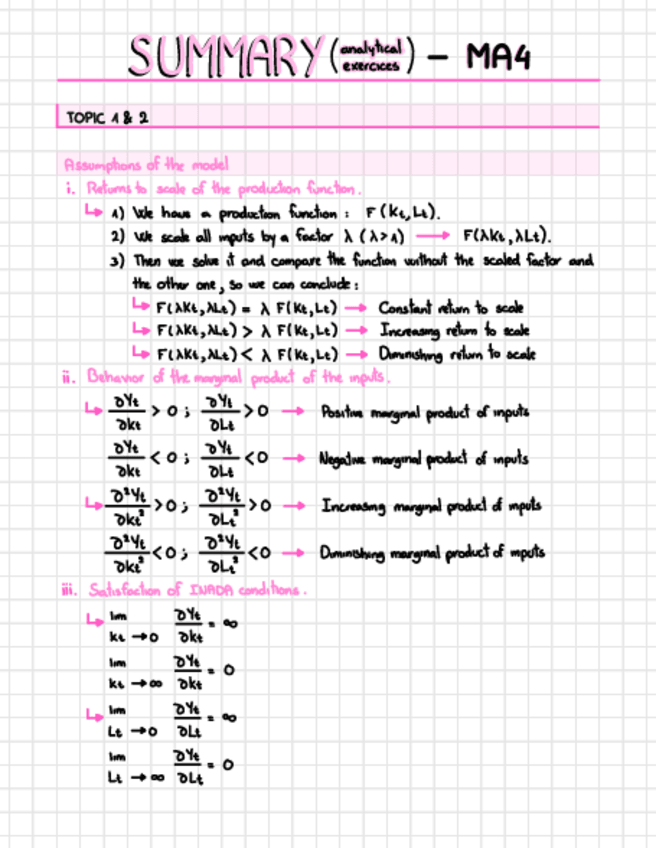 SUMMARY (analytical exercices) - MA4
TOPIC 1 & 2
Assumptions of the model
i. Returns to scale of the production function.
↳ 1) We have a production function : F(Kt, Lt).
2) We scale all inputs by a factor λ (λ>1) → F(λKt, λLt).
3) Then we solve it and compare the function without the scaled factor and
the other one, so we can conclude:
↳ F(λKt, λLt) = λ F(Kt, Lt) → Constant return to scale
↳ F(λKt, λLt) > λ F(Kt, Lt) → Increasing return to scale
↳ F(λKt, λLt) < λ F(Kt, Lt) → Diminishing return to scale
ii. Behavior of the marginal product of the inputs.
↳ ∂Yt/∂kt > 0 ; ∂Yt/∂Lt > 0 → Positive marginal product of inputs
∂Yt/∂kt < 0 ; ∂Yt/∂Lt < 0 → Negative marginal product of inputs
↳ ∂²Yt/∂kt² > 0 ; ∂²Yt/∂Lt² > 0 → Increasing marginal product of inputs
∂²Yt/∂kt² < 0 ; ∂²Yt/∂Lt² < 0 → Diminishing marginal product of inputs
iii. Satisfaction of INADA conditions.
↳ lim kt → 0 ∂Yt/∂kt = ∞
lim kt → ∞ ∂Yt/∂kt = 0
↳ lim Lt → 0 ∂Yt/∂Lt = ∞
lim Lt → ∞ ∂Yt/∂Lt = 0